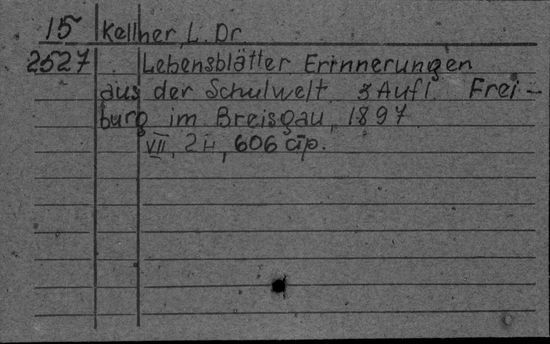 15 Kellner, L. Dr
2527 Lebensblätter Erinnerungen
aus der Schulwelt 3 Aufl. Frei-
burg im Breisgau, 1897
VII, 2н, 606 стр.